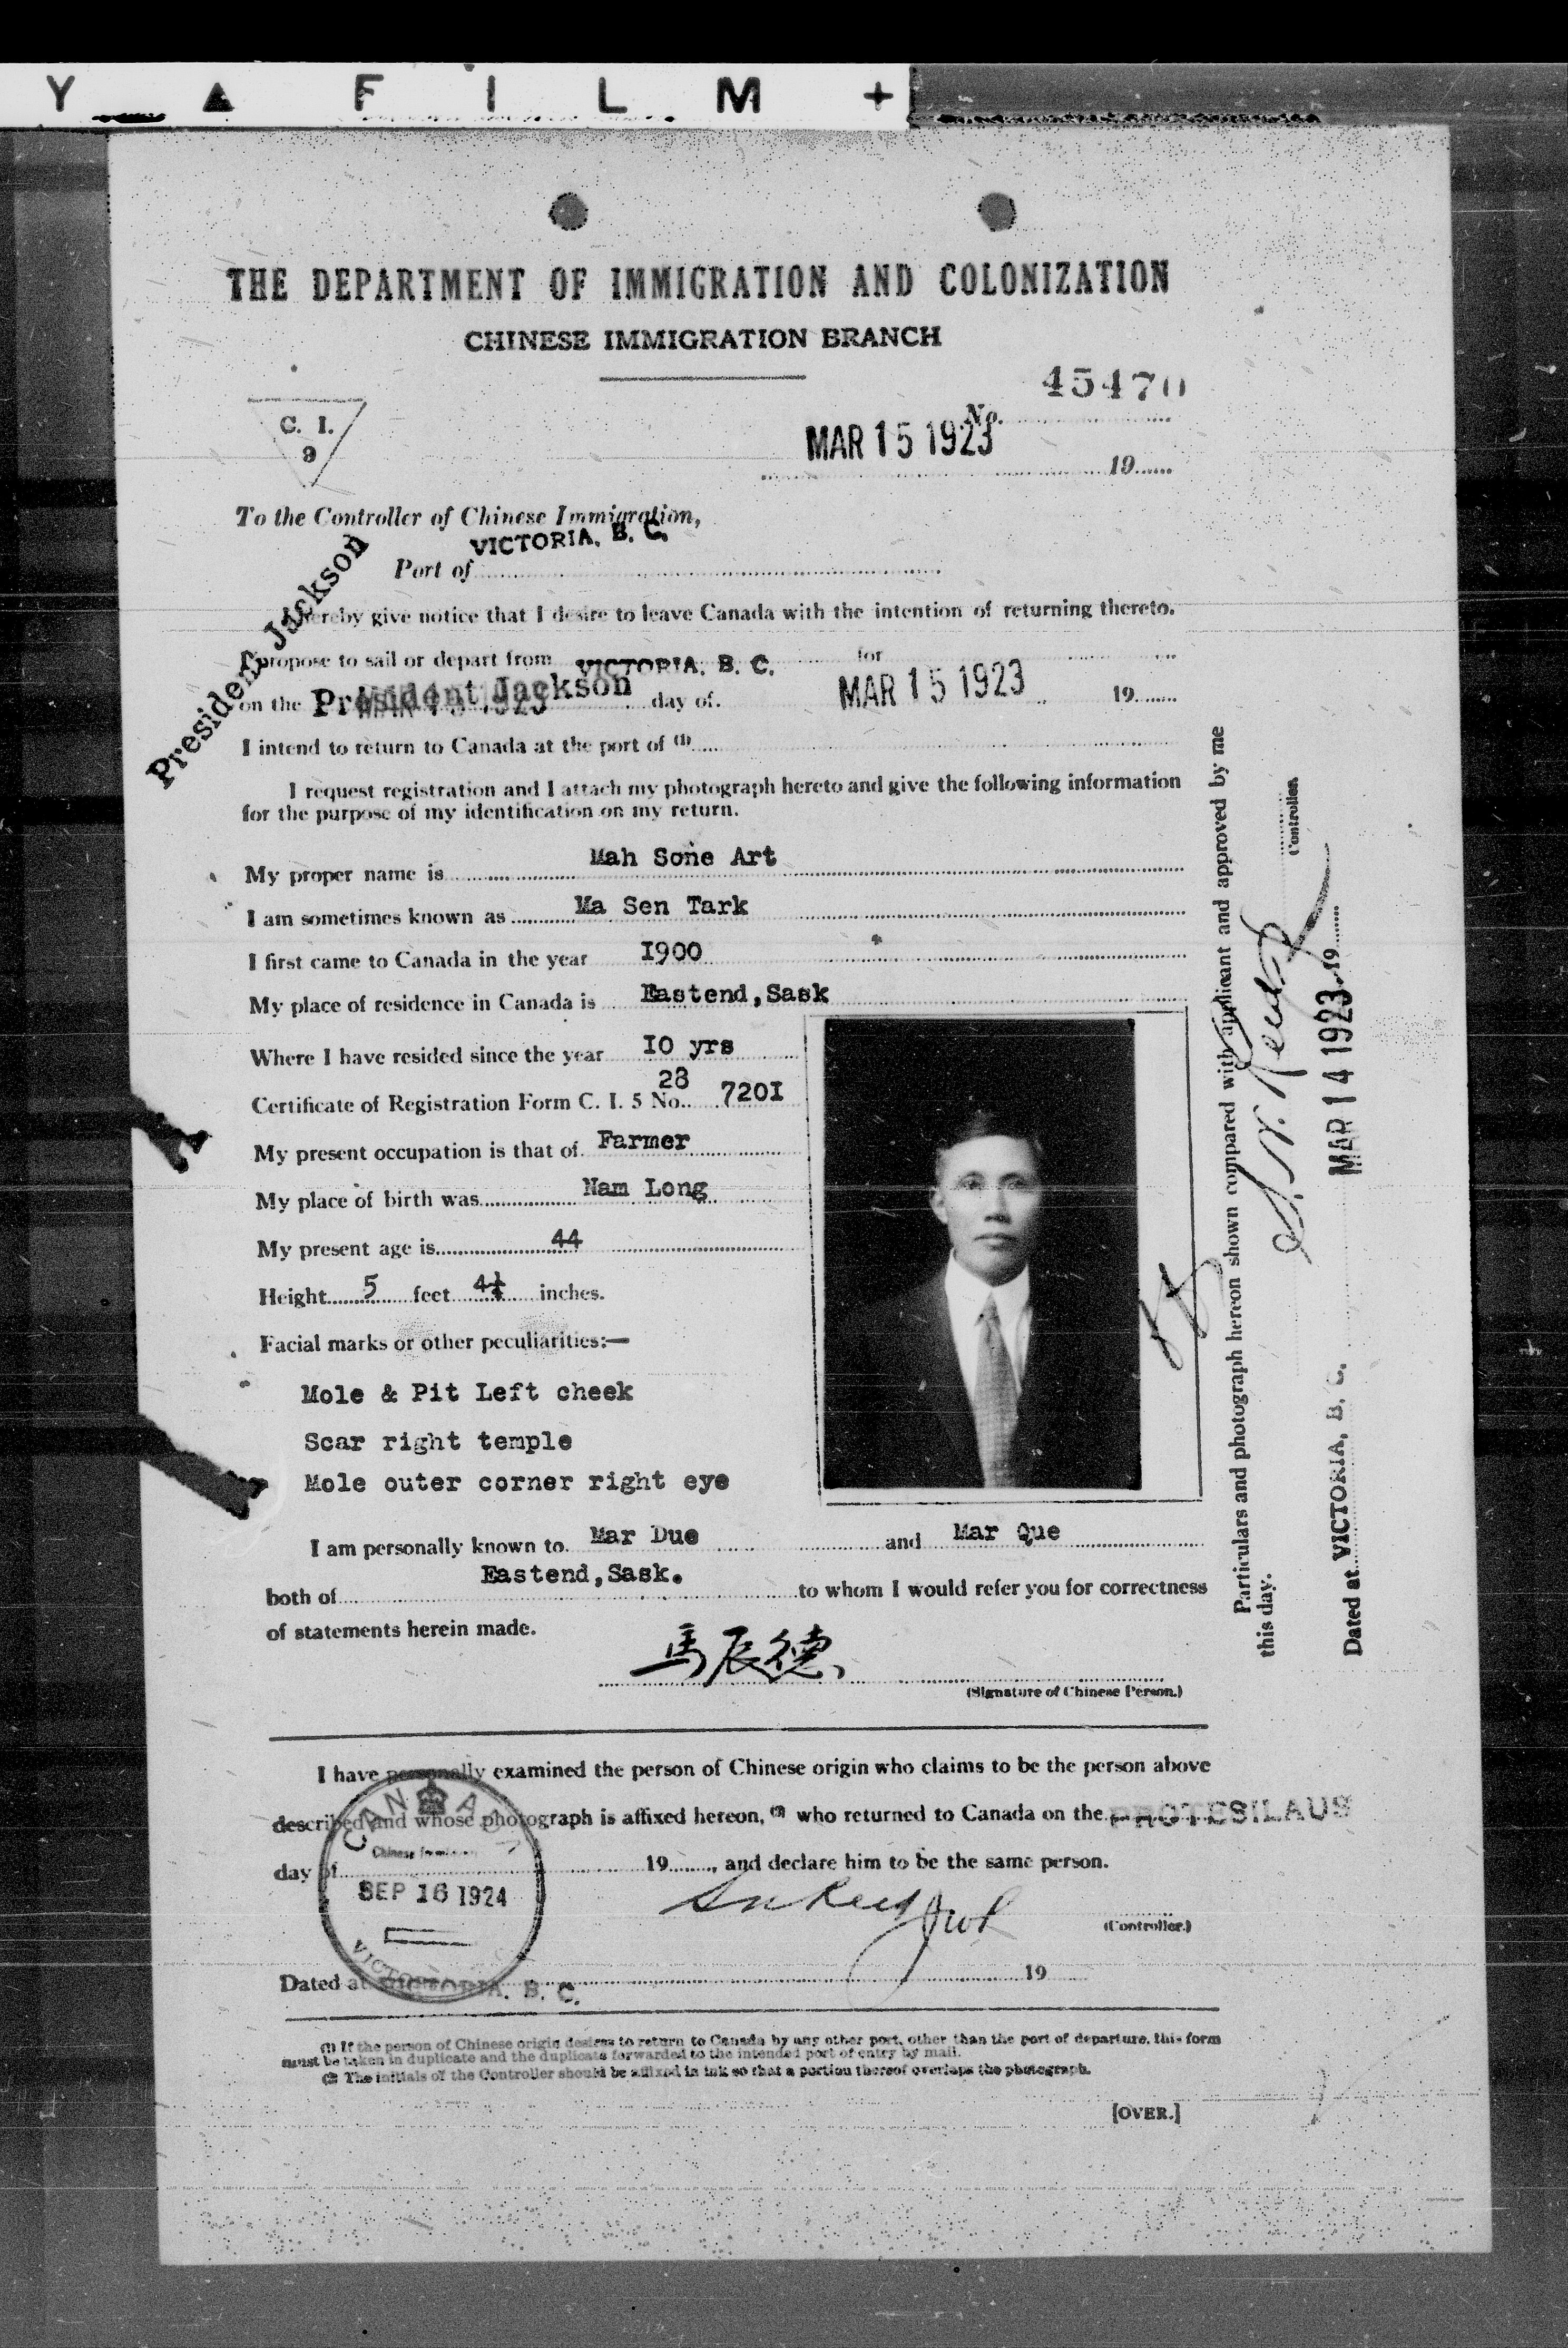 Y ▲ F I L M +
THE DEPARTMENT OF IMMIGRATION AND COLONIZATION
CHINESE IMMIGRATION BRANCH
45470
C. I.
9
No.
MAR 15 1923
19
To the Controller of Chinese Immigration,
VICTORIA, B. C.
Port of
President Jackson
hereby give notice that I desire to leave Canada with the intention of returning thereto.
I propose to sail or depart from VICTORIA, B. C. for
on the President Jackson day of MAR 15 1923 19
I intend to return to Canada at the port of (1)
I request registration and I attach my photograph hereto and give the following information
for the purpose of my identification on my return.
My proper name is Mah Sone Art
I am sometimes known as Ma Sen Tark
I first came to Canada in the year I900
My place of residence in Canada is Eastend,Sask
Where I have resided since the year IO yrs
28
Certificate of Registration Form C. I. 5 No. 720I
My present occupation is that of Farmer
My place of birth was Nam Long
My present age is 44
Height 5 feet 4¼ inches.
Facial marks or other peculiarities:—
Mole & Pit Left cheek
Scar right temple
Mole outer corner right eye
I am personally known to Mar Due and Mar Que
both of Eastend,Sask. to whom I would refer you for correctness
of statements herein made.
馬辰德
(Signature of Chinese Person.)
Particulars and photograph hereon shown compared with applicant and approved by me
this day.
Controller.
Dated at VICTORIA, B. C. MAR 14 1923 19
I have personally examined the person of Chinese origin who claims to be the person above
described and whose photograph is affixed hereon, (2) who returned to Canada on the PROTESILAUS
day of 19, and declare him to be the same person.
CANADA
Chinese Immigration
SEP 16 1924
VICTORIA
(Controller.)
Dated at VICTORIA, B. C. 19
(1) If the person of Chinese origin desires to return to Canada by any other port, other than the port of departure, this form
must be taken in duplicate and the duplicate forwarded to the intended port of entry by mail.
(2) The initials of the Controller should be affixed in ink so that a portion thereof overlaps the photograph.
[OVER.]